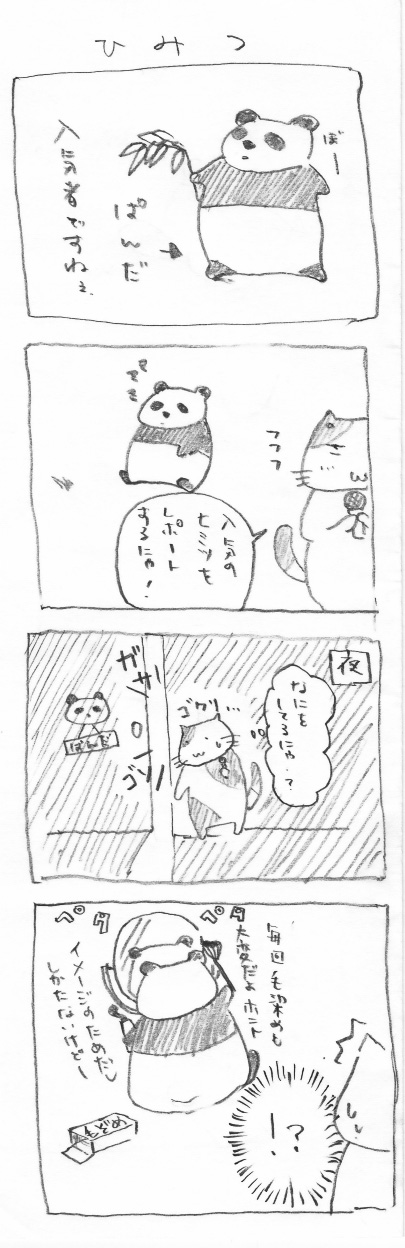 ひみつ
ぼー
ぱんだ
人気者ですねぇ.
フフフ
人気の
ヒミツを
レポート
するにゃ!
夜
なにを
してるにゃ..?
ゴクリ...
ガサ
ゴソ
ぱんだ
毎回毛染めも
大変だよホント
ペタ
ペタ
イメージのためだし
しかたないけどー
毛ぞめ
!?